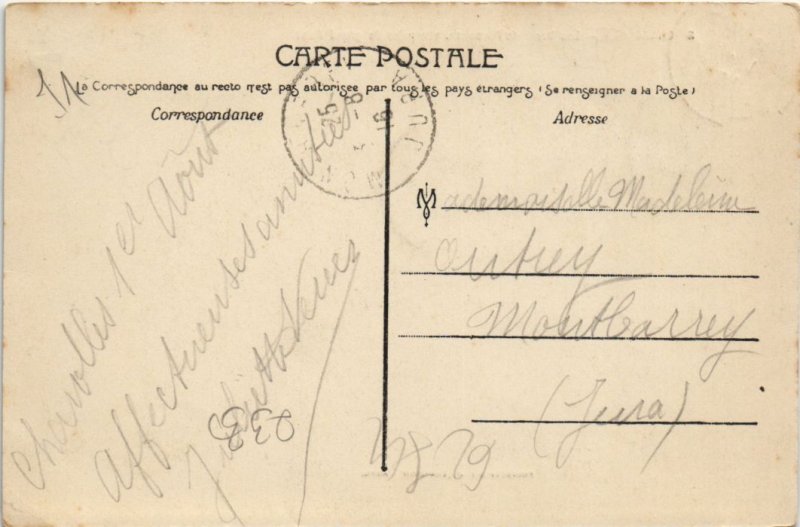 CARTE POSTALE
La Correspondance au recto n'est pas autorisée par tous les pays étrangers (Se renseigner a la Poste)
Correspondance
Adresse
Charolles 1er Août
Affectueuses amitiés
Juliette
233
Mademoiselle Madeleine
Autrey
Montbarrey
(Jura)
JURA
25